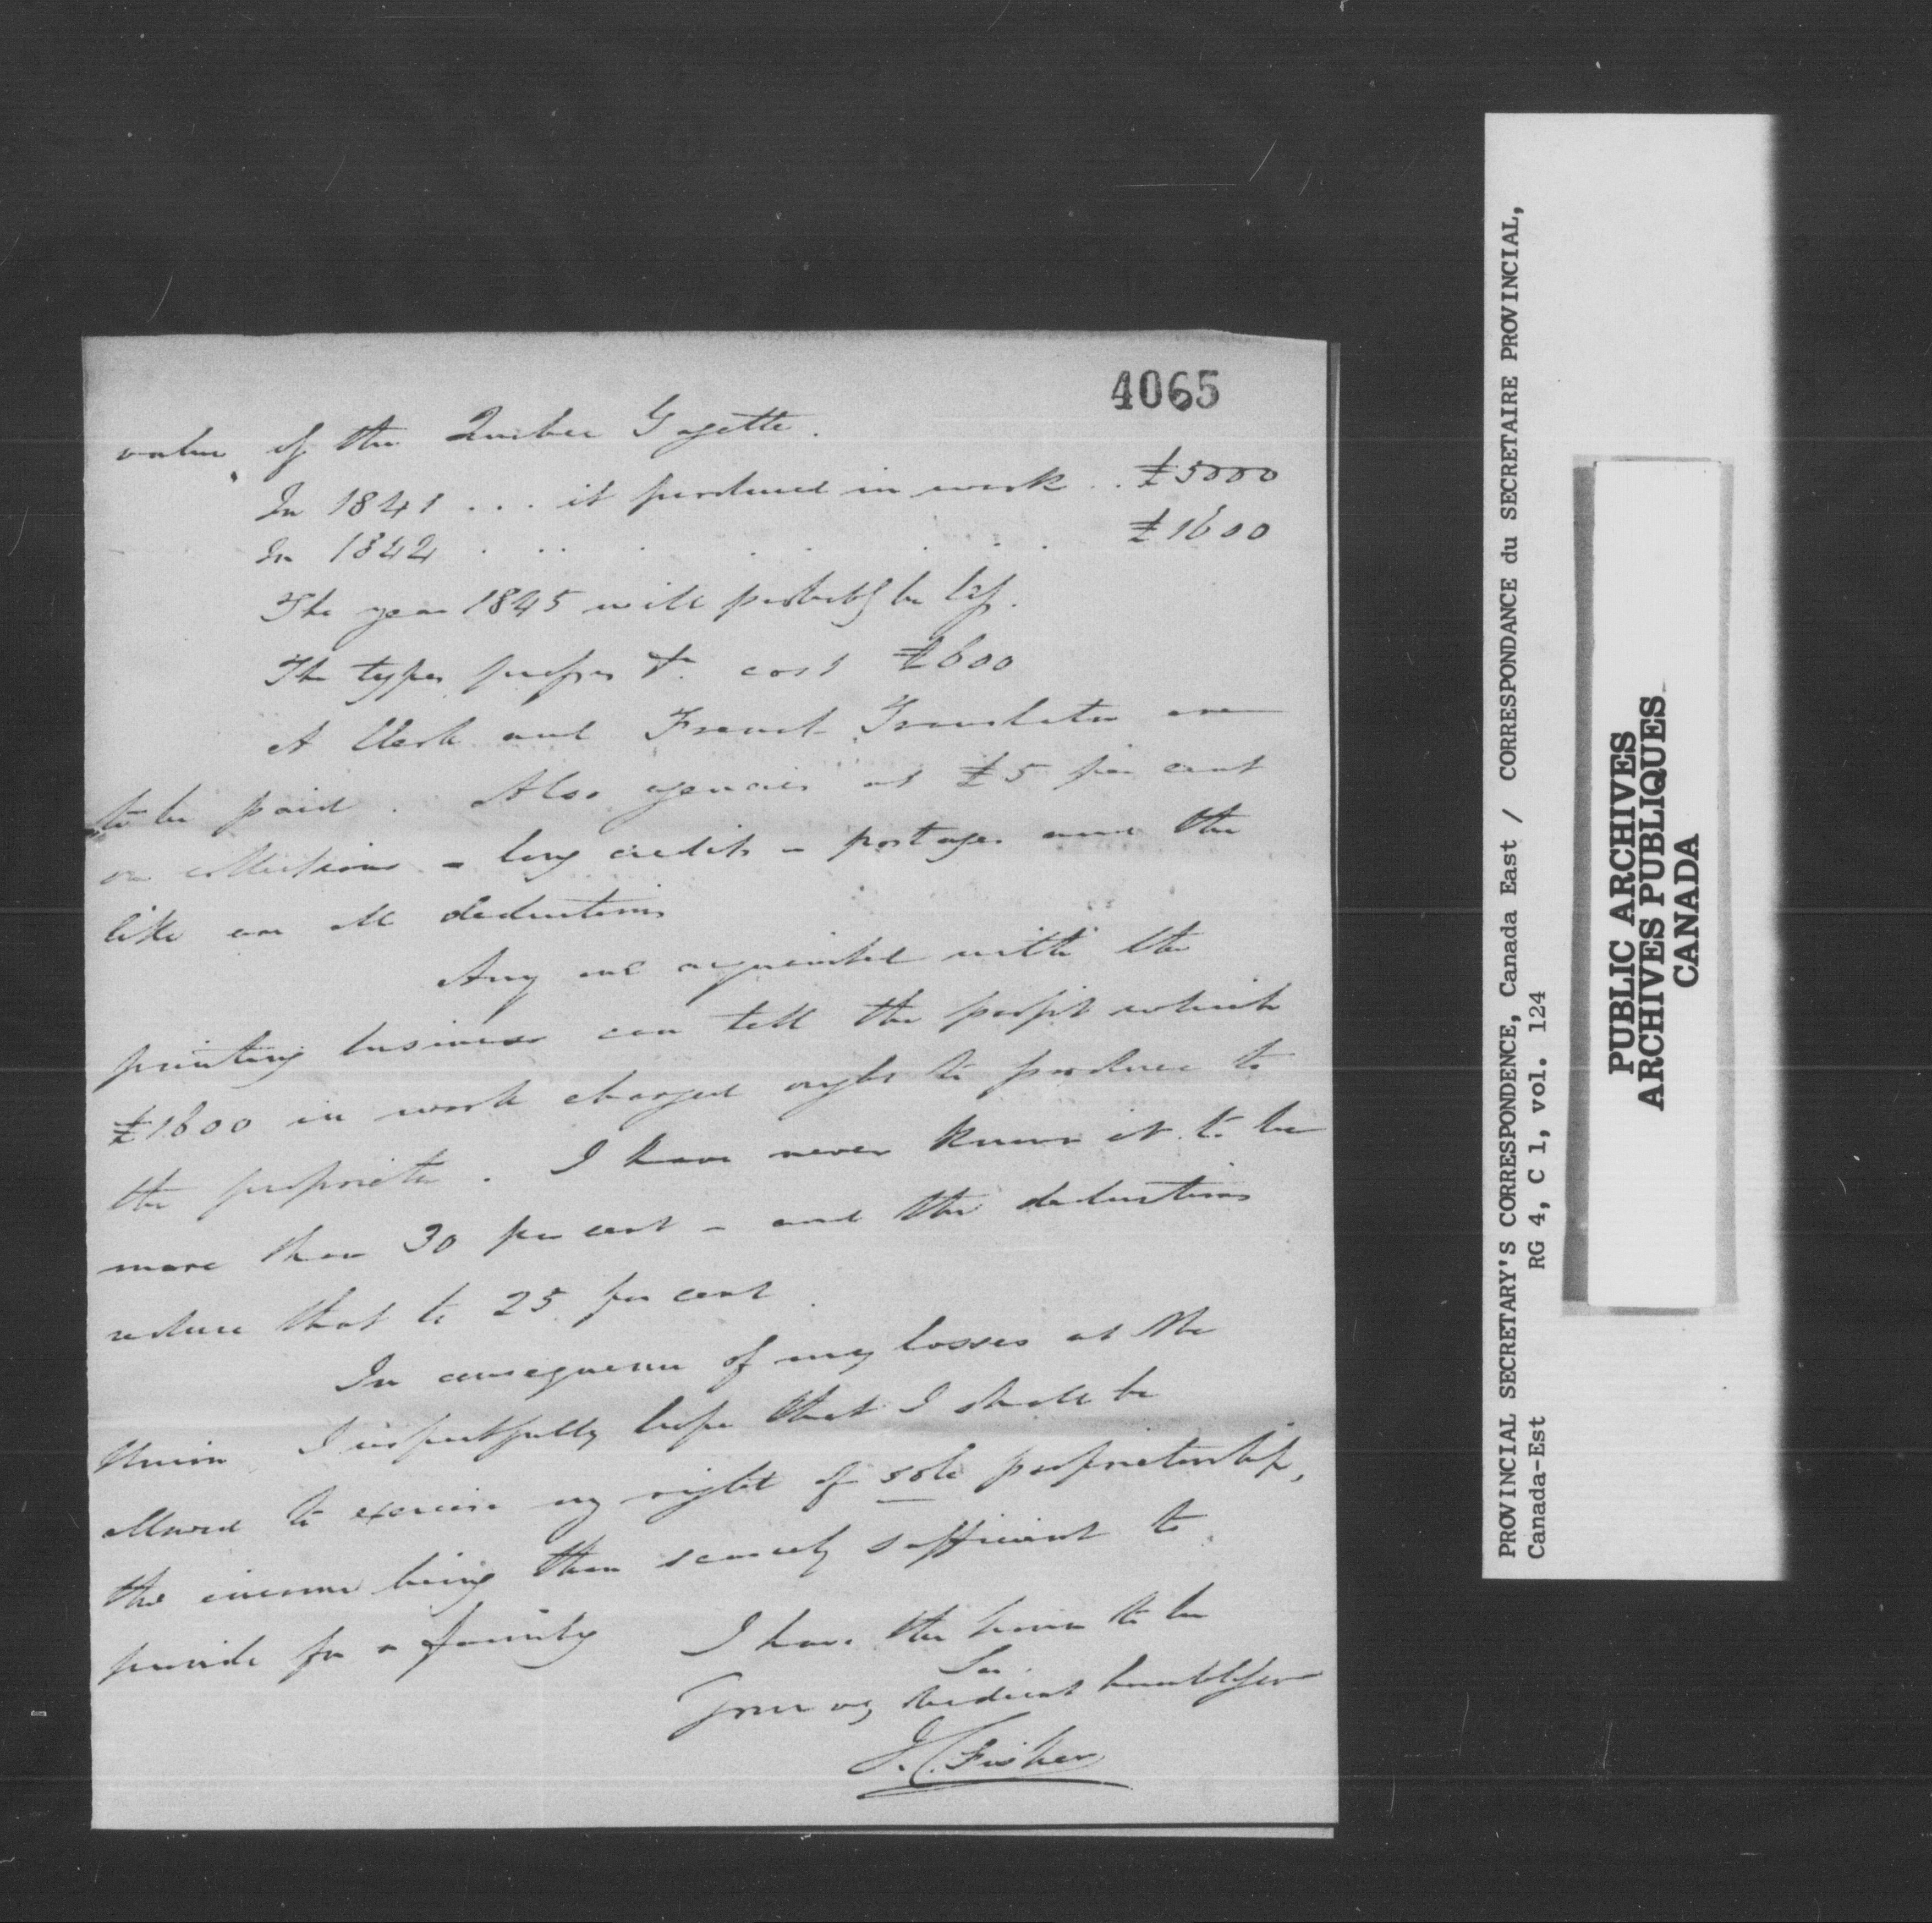 4065
value of the Quebec Gazette.
In 1841 ... it produced in work .. £5000
In 1842 . . . . . . . . £1600
The year 1845 will probably be less.
The types presses &c. cost £600
A Clerk and French Translator are
to be paid. Also agencies at £5 per cent
on collections - long credits - postages and the
like are all deductions
Any one acquainted with the
printing business can tell the profit which
£1600 in work charged ought to produce to
the proprietor. I have never known it to be
more than 30 per cent - and the deductions
reduce that to 25 per cent.
In consequence of my losses at the
Union, I respectfully hope that I shall be
allowed to exercise my right of sole proprietorship,
the income being then scarcely sufficient to
provide for a family
I have the honor to be
Sir
Your obedient humble
J. C. Fisher
PROVINCIAL SECRETARY'S CORRESPONDENCE, Canada East / CORRESPONDANCE du SECRETAIRE PROVINCIAL,
Canada-Est RG 4, C 1, vol. 124
PUBLIC ARCHIVES
ARCHIVES PUBLIQUES
CANADA